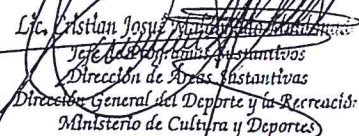 Lic. Cristian Josué
Jefe de Programas Sustantivos
Dirección de Áreas Sustantivas
Dirección General del Deporte y la Recreación
Ministerio de Cultura y Deportes